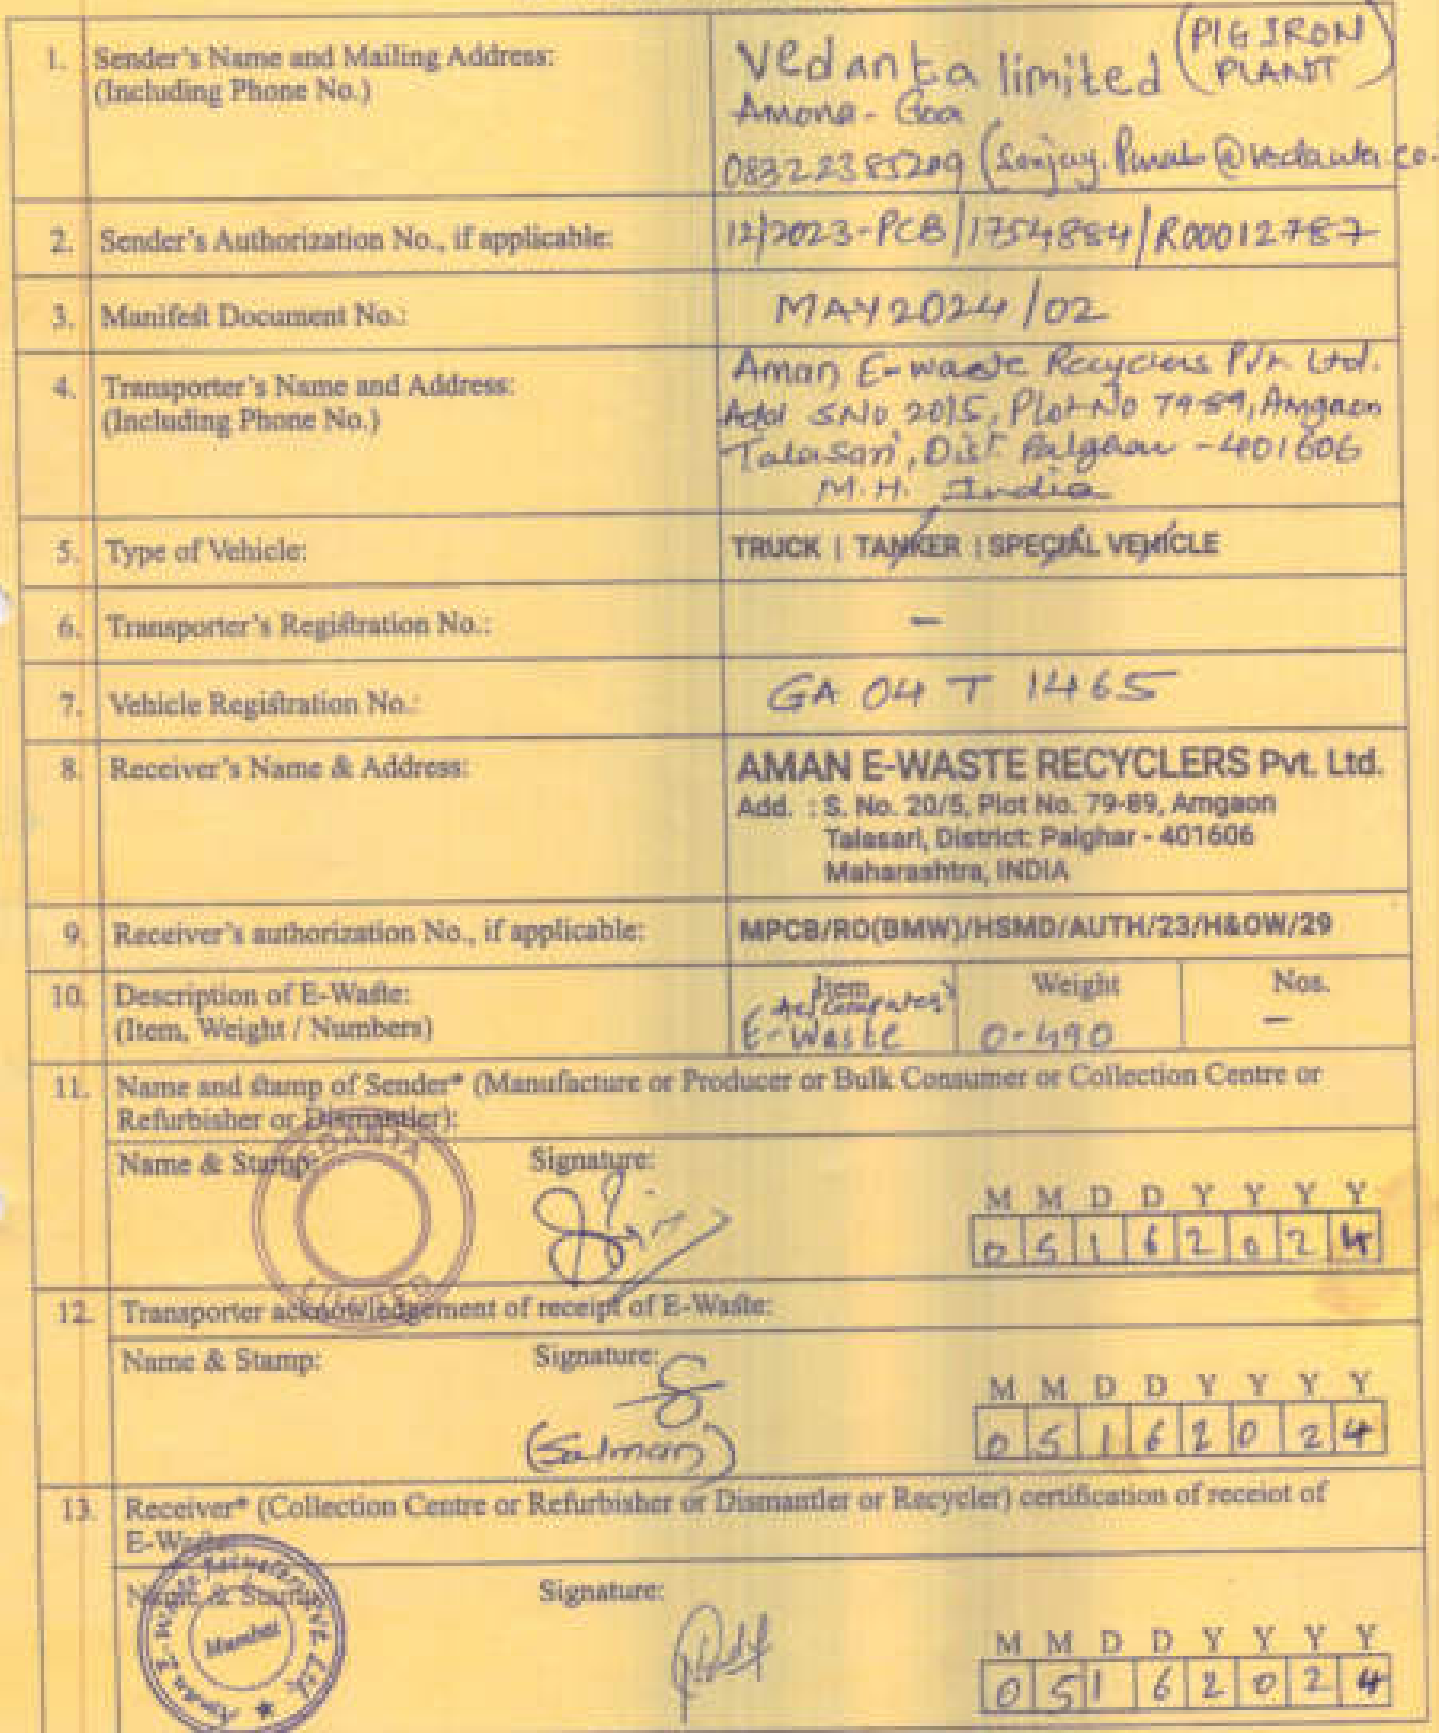 1. Sender's Name and Mailing Address:
(Including Phone No.)
Vedanta limited (PIG IRON PLANT)
Amona - Goa
08322385209 (Sanjay. @vedanta.co.
2. Sender's Authorization No., if applicable: 12/2023-PCB/1754884/R00012787
3. Manifest Document No.: MAY 2024/02
4. Transporter's Name and Address:
(Including Phone No.)
Aman E-waste Recyclers Pvt Ltd.
Add S No 2015, Plot No 79-89, Amgaon
Talasari, Dist Palghar - 401606
M.H. India
5. Type of Vehicle: TRUCK | TANKER | SPECIAL VEHICLE
6. Transporter's Registration No.: –
7. Vehicle Registration No.: GA 04 T 1465
8. Receiver's Name & Address: AMAN E-WASTE RECYCLERS Pvt. Ltd.
Add. : S. No. 20/5, Plot No. 79-89, Amgaon
Talasari, District: Palghar - 401606
Maharashtra, INDIA
9. Receiver's authorization No., if applicable: MPCB/RO(BMW)/HSMD/AUTH/23/H&OW/29
10. Description of E-Waste: Item Weight Nos.
(Item, Weight / Numbers) E-Waste 0-490 –
11. Name and stamp of Sender* (Manufacture or Producer or Bulk Consumer or Collection Centre or
Refurbisher or Dismantler):
VEDANTA LIMITED
Name & Stamp: Signature:
M M D D Y Y Y Y
0 5 1 6 2 0 2 4
12. Transporter acknowledgement of receipt of E-Waste:
Name & Stamp: Signature:
(Salman)
M M D D Y Y Y Y
0 5 1 6 2 0 2 4
13. Receiver* (Collection Centre or Refurbisher or Dismantler or Recycler) certification of receiot of
E-Waste
Name & Stamp Signature:
Aman E-Waste Recyclers Pvt. Ltd. ★
Mumbai
M M D D Y Y Y Y
0 5 1 6 2 0 2 4